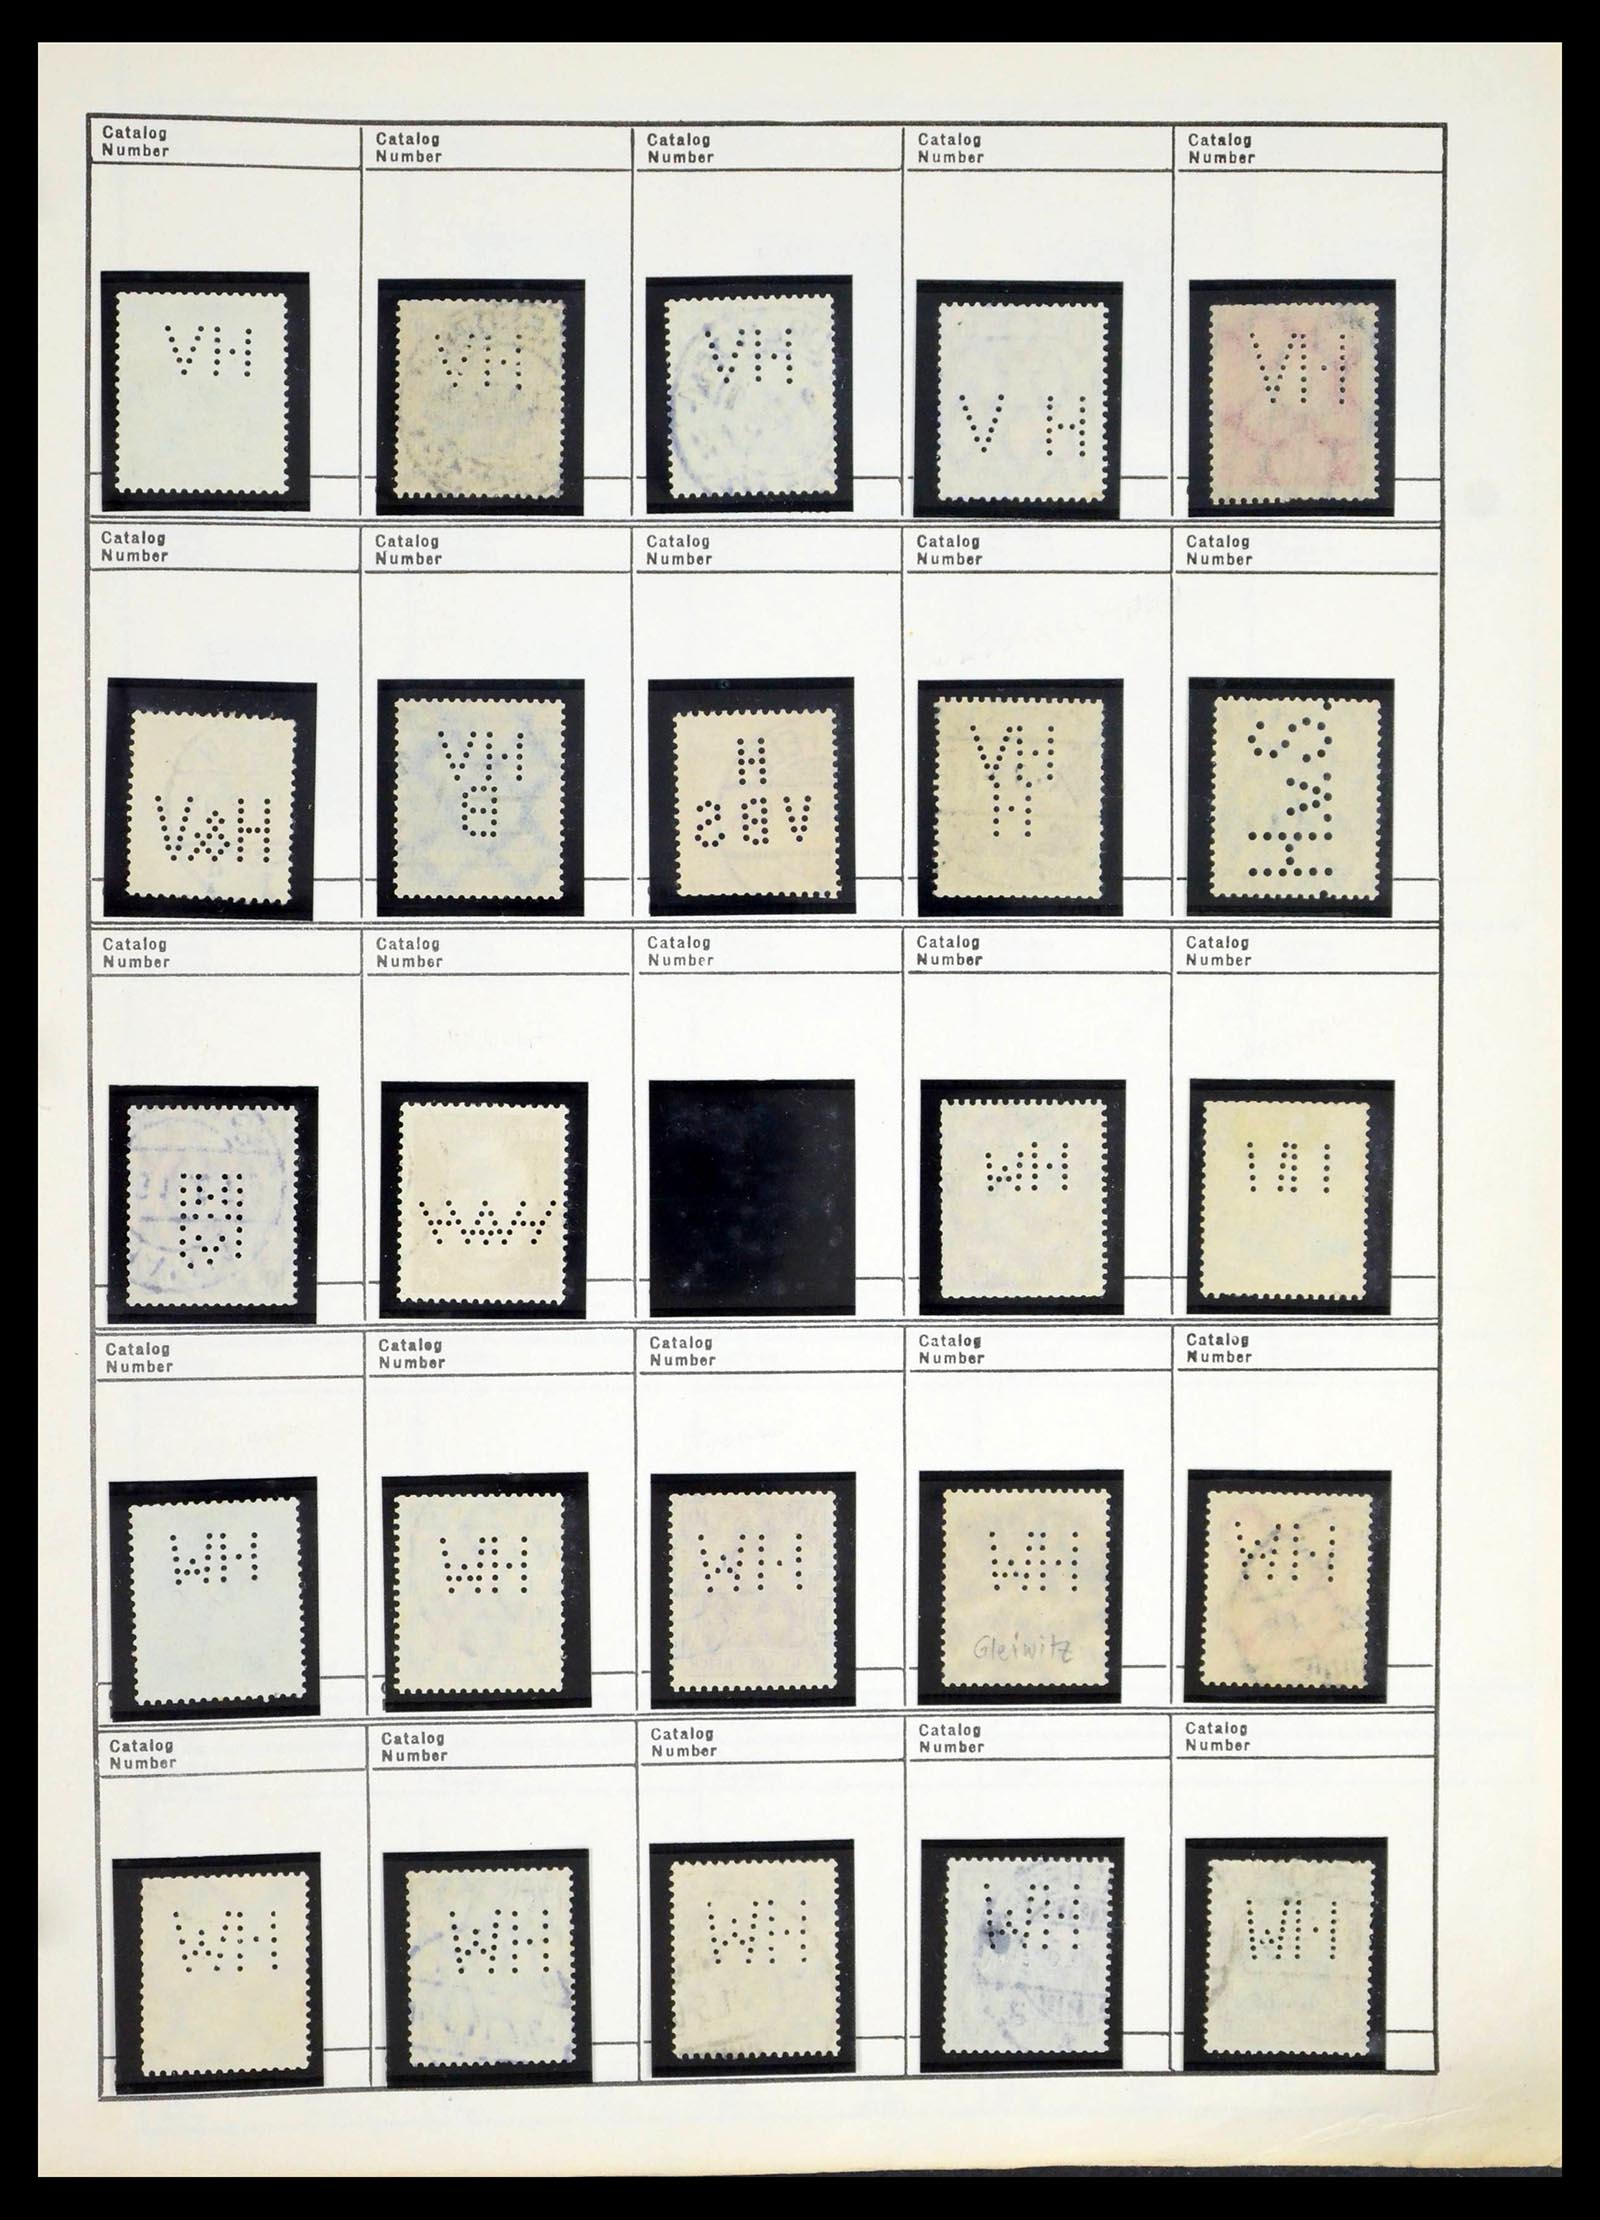 Catalog Number
Catalog Number
Catalog Number
Catalog Number
Catalog Number
VH
VH
VH
V H
VH
Catalog Number
Catalog Number
Catalog Number
Catalog Number
Catalog Number
V&H
VH
B
H
VBS
VH
H
Catalog Number
Catalog Number
Catalog Number
Catalog Number
Catalog Number
WH
Catalog Number
Catalog Number
Catalog Number
Catalog Number
Catalog Number
WH
WH
WH
WH
WH
Gleiwitz
Catalog Number
Catalog Number
Catalog Number
Catalog Number
Catalog Number
WH
WH
WH
WH
WH